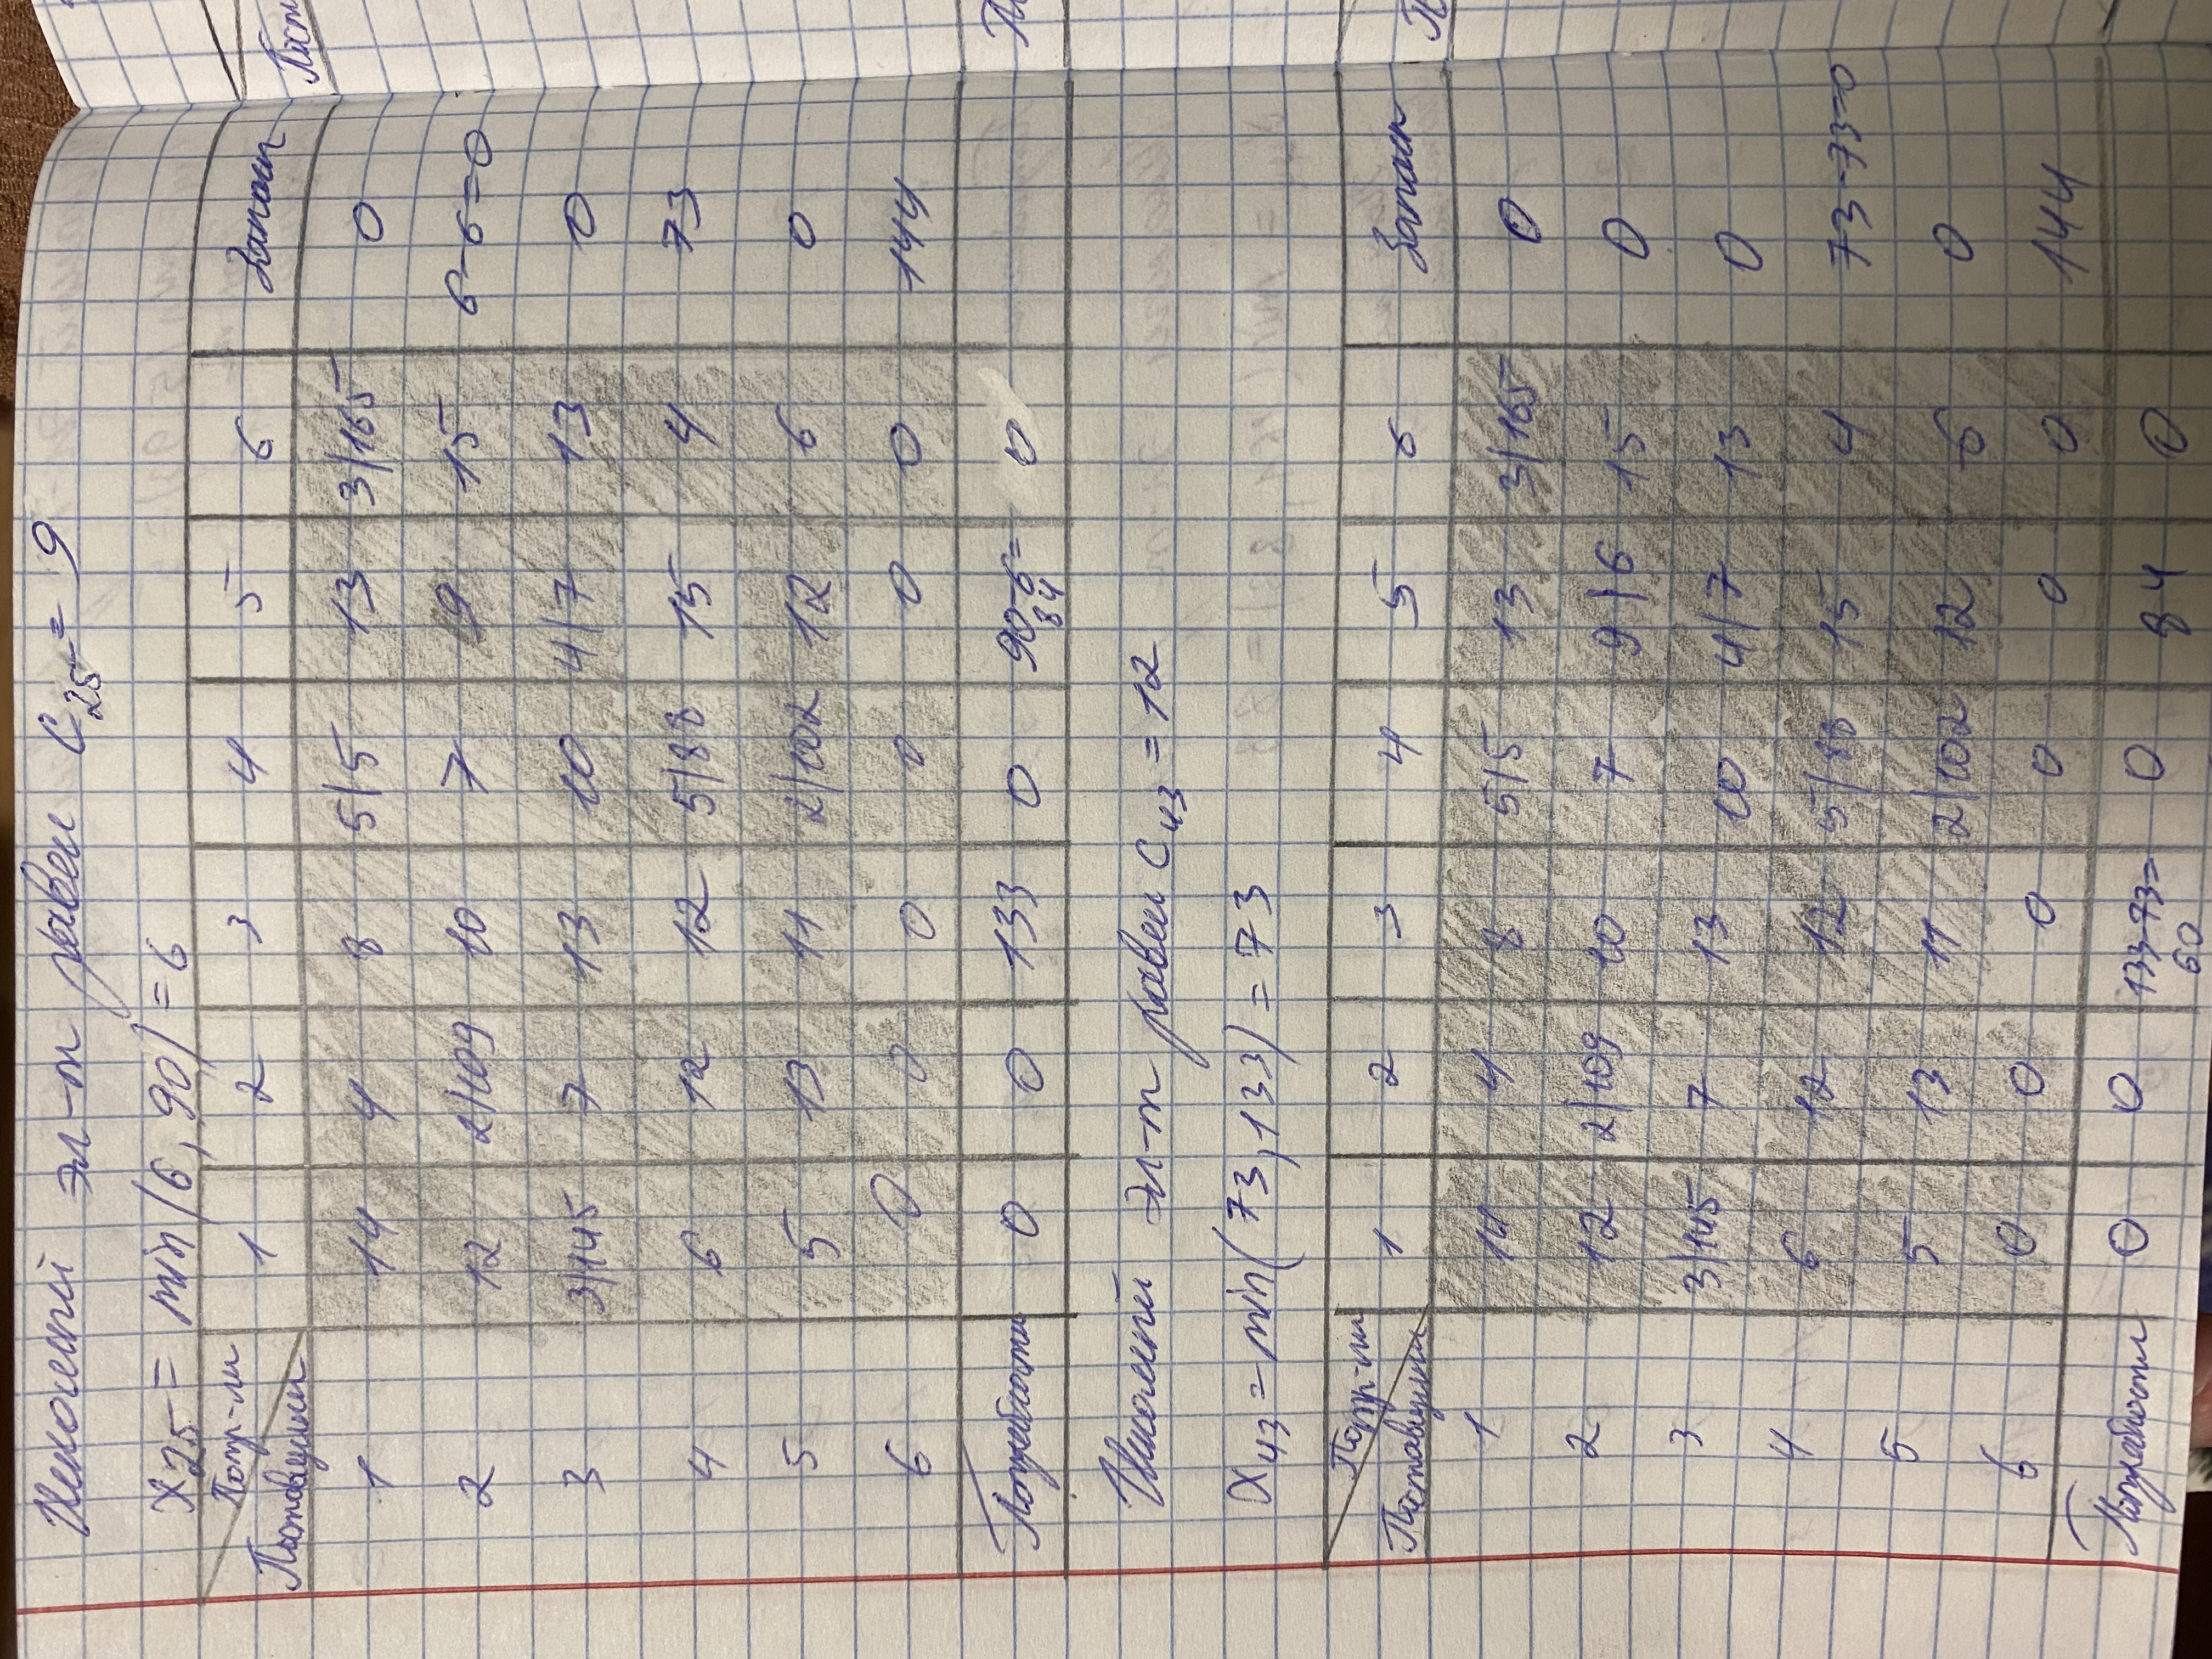 Искомый эл-т равен C₂₅ = 9
x₂₅ = min(6, 90) = 6
Потр-ли 1 2 3 4 5 6 Запасы
Поставщики
1 14 4 8 5|5 13 3|165 0
2 12 2|109 10 7 9 15 6-6=0
3 3|145 7 13 10 4|7 13 0
4 6 12 12 5|88 15 4 73
5 5 13 11 2|102 12 6 0
6 0 0 0 0 0 0 144
Потребности 0 0 133 0 90-6= 0
84
Искомый эл-т равен C₄₃ = 12
x₄₃ = min(73, 133) = 73
Потр-ли
Поставщики 1 2 3 4 5 6 Запасы
1 14 4 8 5|5 13 3|165 0
2 12 2|109 10 7 9|6 15 0
3 3|145 7 13 10 4|7 13 0
4 6 12 12 5|88 15 4 73-73=0
5 5 13 11 2|102 12 6 0
6 0 0 0 0 0 0 144
Потребности 0 0 133-73= 0 84 0
60